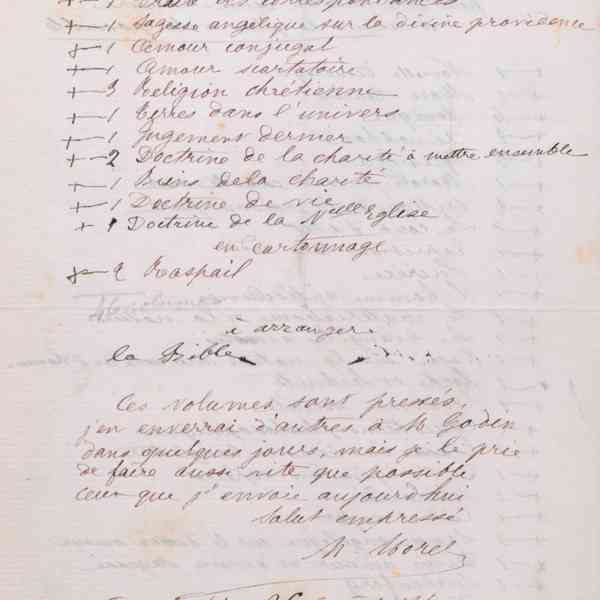 + — 1 Traité des correspondances
+ — 1 Sagesse angélique sur la divine providence
+ — 1 Amour conjugal
+ — 1 Amour scortatoire
+ — 3 Religion chrétienne
+ — 1 Terres dans l'univers
+ — 1 Jugement dernier
+ — 2 Doctrine de la charité à mettre ensemble
+ — 1 Biens de la charité
+ — 1 Doctrine de vie
+ 1 Doctrine de la Nlle Eglise
en cartonnage
+ — 2 Raspail
à arranger
la Bible
Ces volumes sont pressés,
j'en enverrai d'autres à M Godin
dans quelques jours, mais je le prie
de faire aussi vite que possible
ceux que j'envoie aujourd'hui
Salut empressé
M Morel